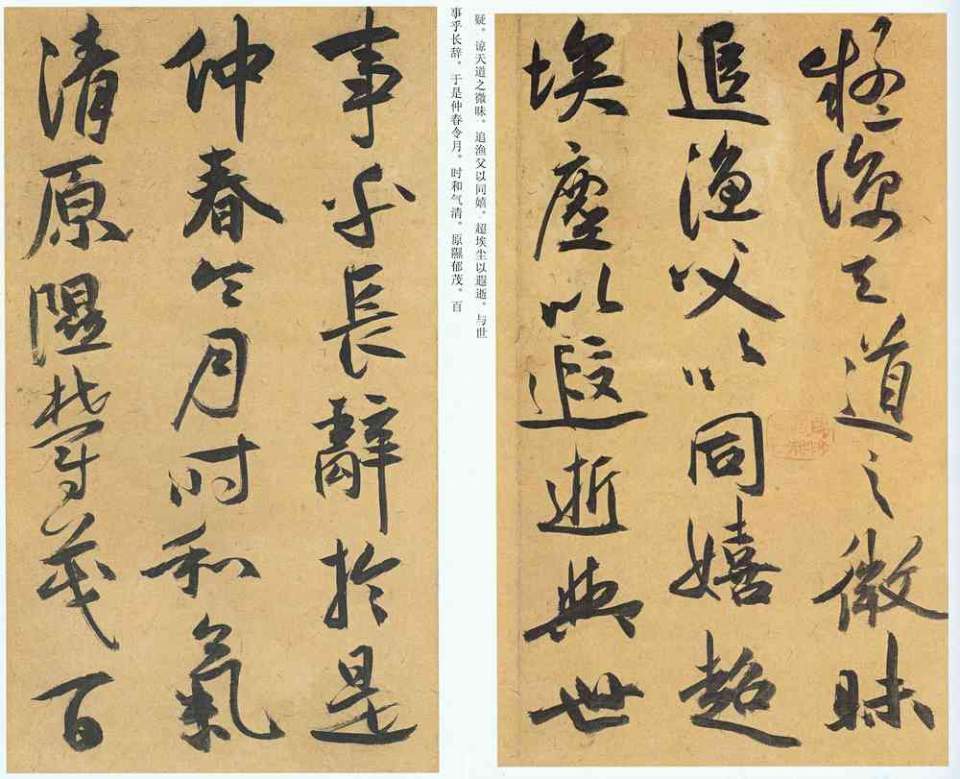 疑諒天道之微昧
追漁父以同嬉超
埃塵以遐逝與世
疑。谅天道之微昧，追渔父以同嬉。超埃尘以遐逝，与世
事乎长辞。于是仲春令月，时和气清。原隰郁茂，百
事乎長辭於是
仲春令月時和氣
清原隰鬱茂百